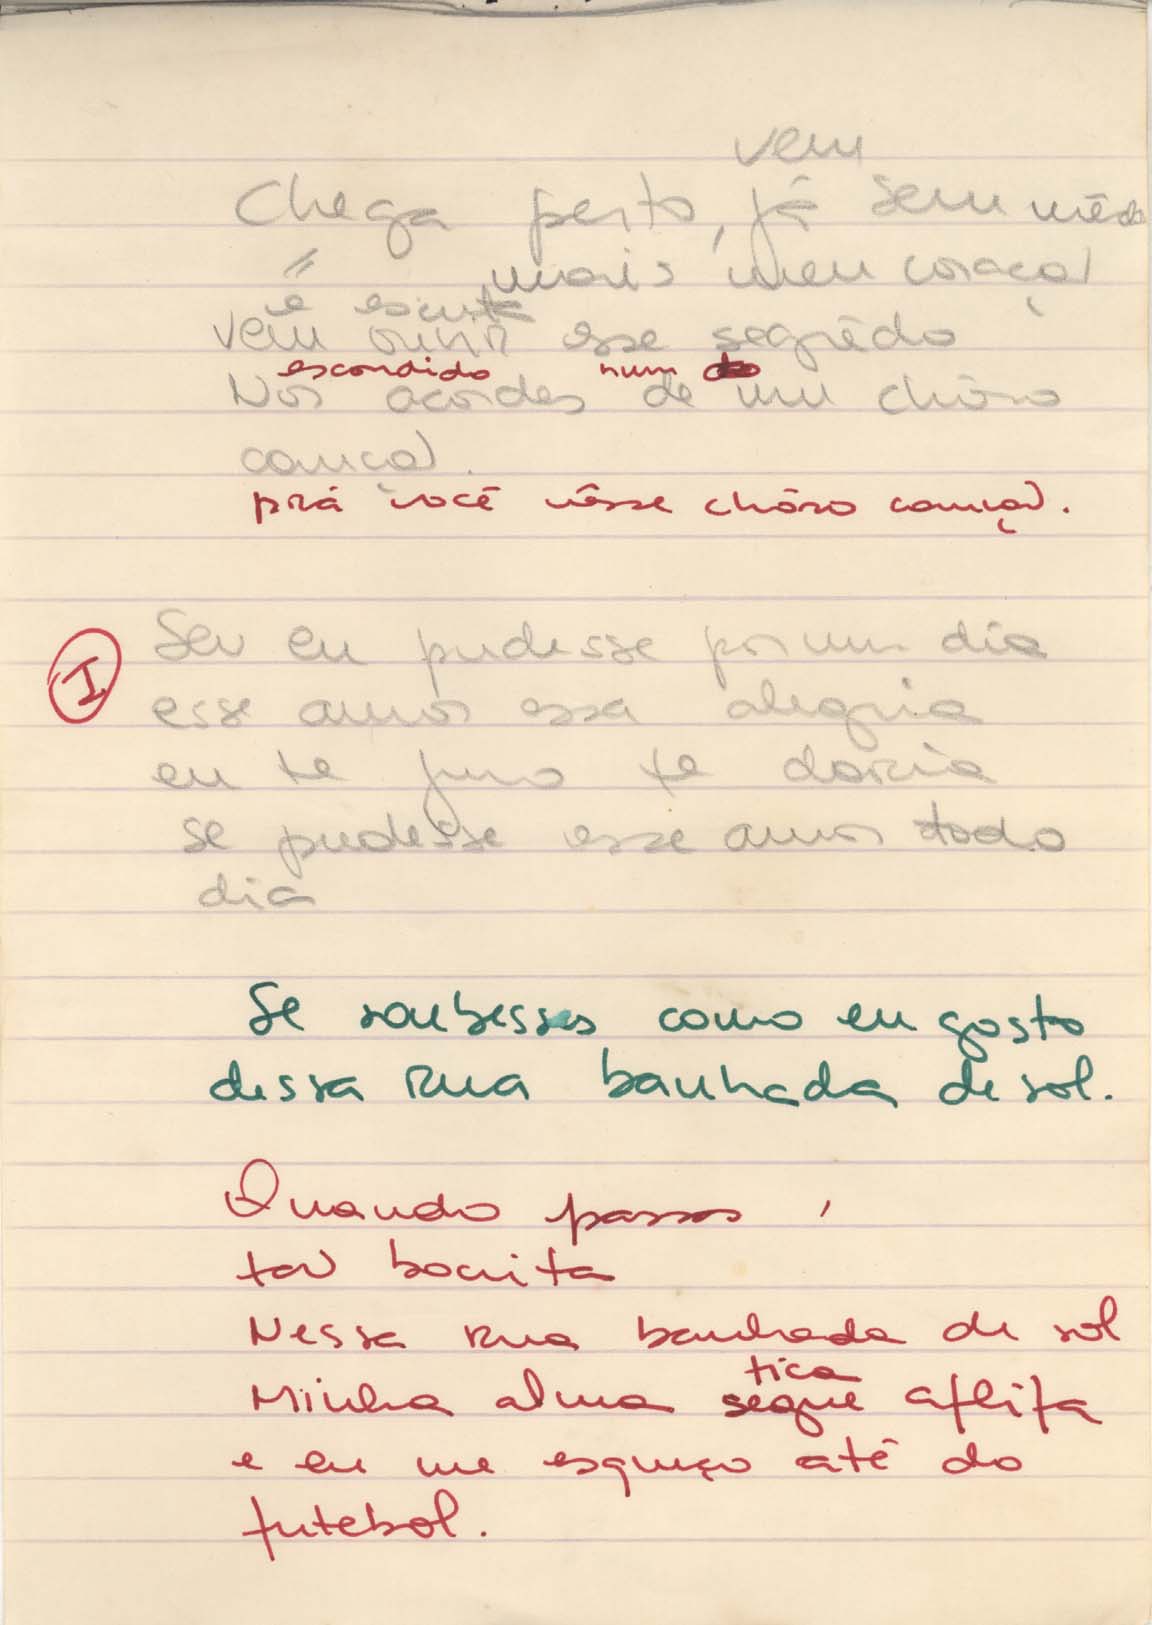 vem
Chega perto, já sem mêdo
mais, meu coração
e escuta
vem ouvir esse segrêdo
escondido num do
Nos acordes de um chôro
canção.
prá você nêsse chôro canção.
I
Seu eu pudesse por um dia
esse amor essa alegria
eu te juro te daria
se pudesse esse amor todo
dia
Se soubesses como eu gosto
dessa rua banhada de sol.
Quando passas,
tão bonita
Nessa rua banhada de sol
fica
Minha alma segue aflita
e eu me esqueço até do
futebol.